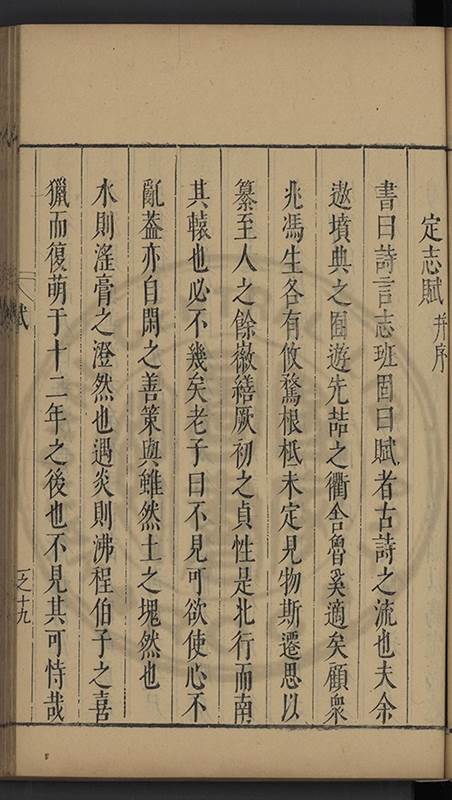 定志賦 并序
書曰詩言志班固曰賦者古詩之流也夫余
遨墳典之囿遊先喆之衢舍魯奚適矣顧衆
兆馮生各有攸騖根柢未定見物斯遷思以
纂至人之餘徽繕厥初之貞性是北行而南
其轅也必不幾矣老子曰不見可欲使心不
亂蓋亦自閑之善策與雖然土之塊然也
水則滛膏之澄然也遇炎則沸程伯子之喜
獵而復萌于十二年之後也不見其可恃哉
賦
之十九